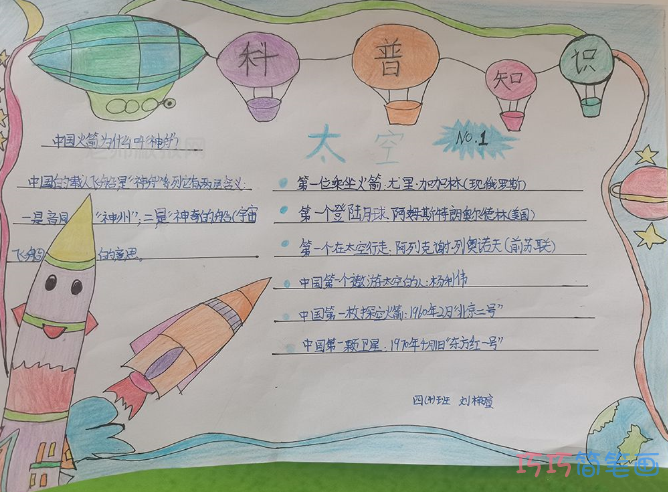 科普知识
太空 NO.1
中国火箭为什么叫"神舟"
中国的载人飞船是"神舟"系列它有两重含义:
一是谐音 "神州",二是"神奇的船(宇宙
飞船) 的意思。
第一位乘坐火箭:尤里·加加林(现俄罗斯)
第一个登陆月球:阿姆斯特朗奥尔德林(美国)
第一个在太空行走:阿列克谢·列奥诺夫(前苏联)
中国第一个遨游太空的人:杨利伟
中国第一枚探空火箭:1960年2月"北京二号"
中国第一颗卫星:1970年 "东方红一号"
四 班 刘
巧巧简笔画